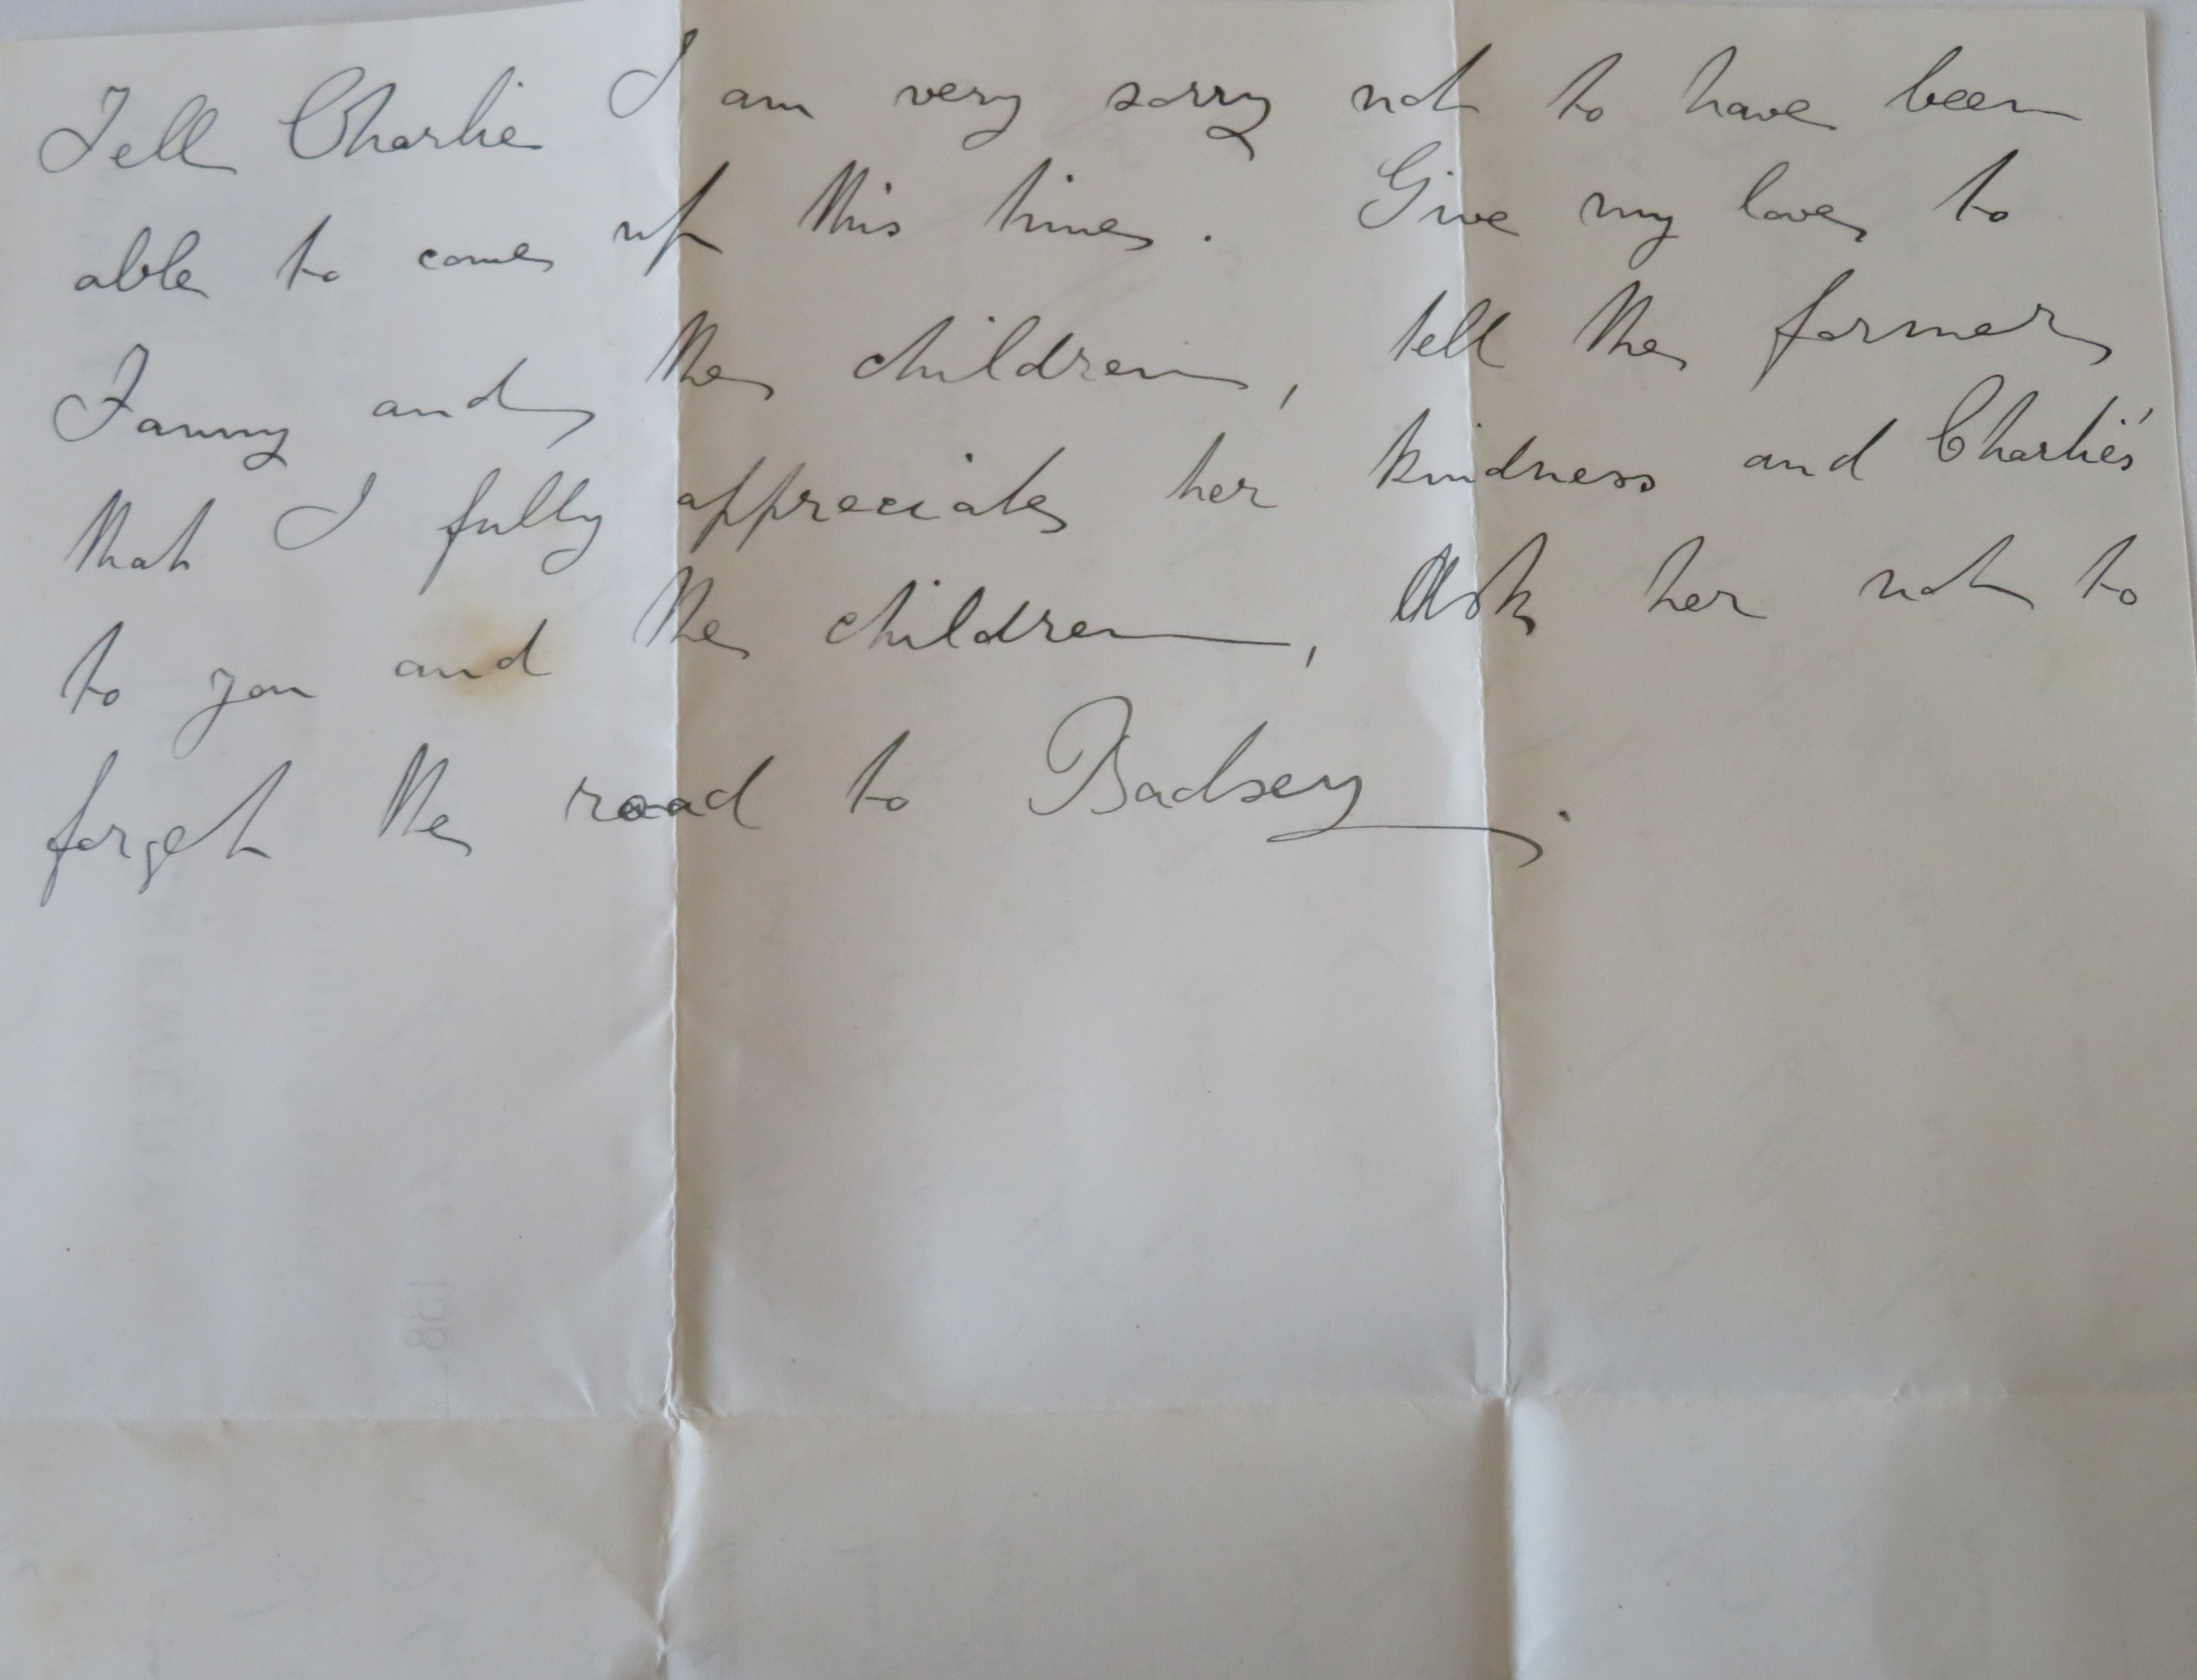 Tell Charlie I am very sorry not to have been
able to come up this time. Give my love to
Fanny and the children, tell the former
that I fully appreciate her kindness and Charlie's
to you and the children, Ask her not to
forget the road to Badsey.